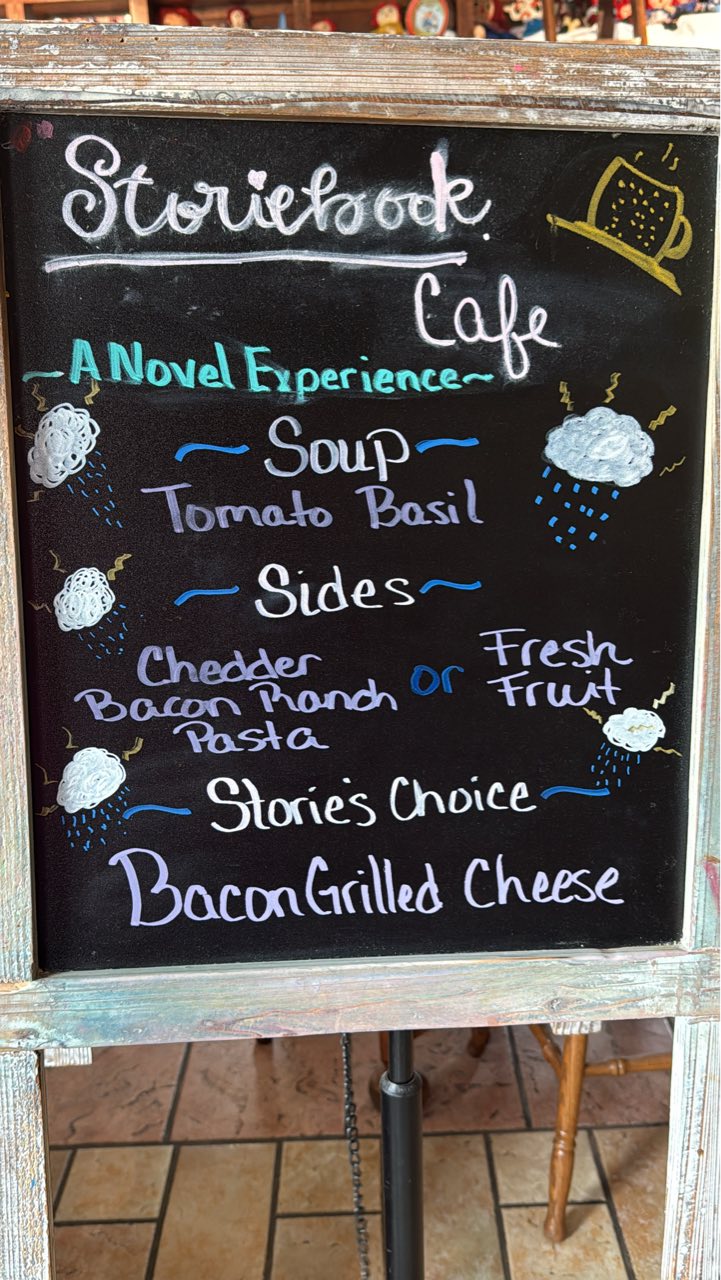 Storiebook
Cafe
~A Novel Experience~
~Soup~
Tomato Basil
~Sides~
Chedder
Bacon Ranch
Pasta
or
Fresh
Fruit
Storie's Choice~
Bacon Grilled Cheese